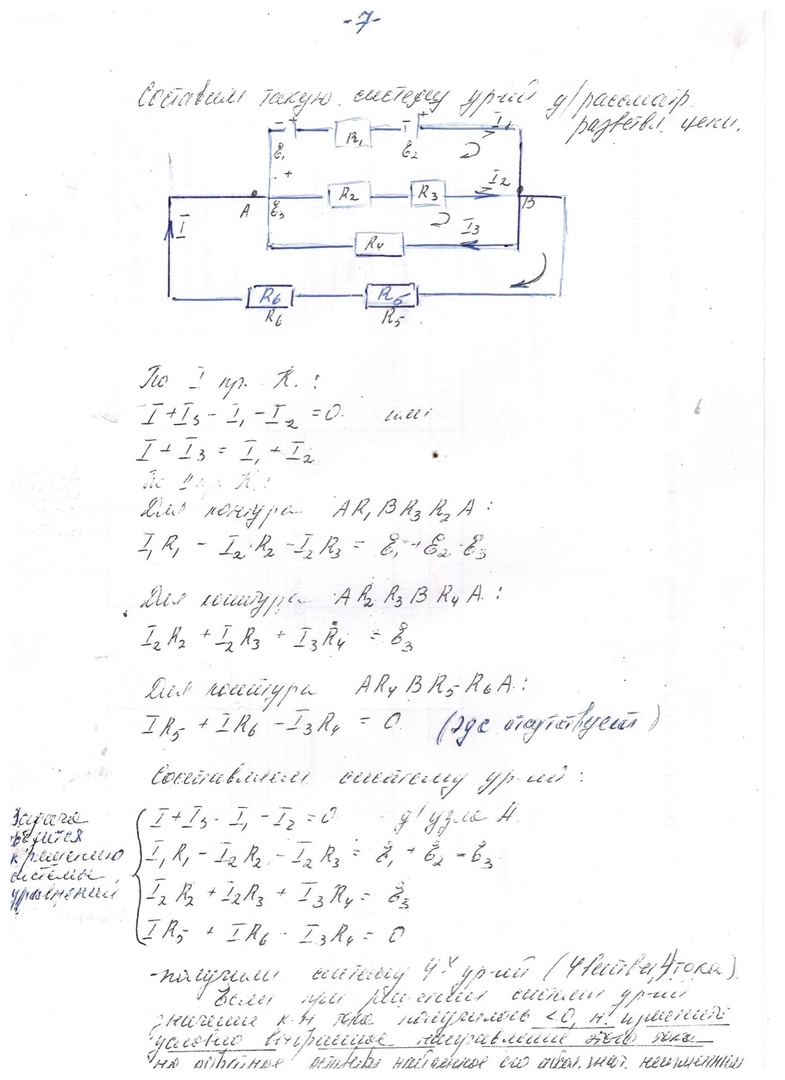 -7-
Составим такую систему ур-ий д/рассматр.
разветвл. цепи.
- + R₁ - + I₁
ℰ₁ ℰ₂
+
A ℰ₃ R₂ R₃ I₂ B
I R₄ I₃
R₆ R₅
R₆ R₅
По I пр. К.:
I + I₃ - I₁ - I₂ = 0 или
I + I₃ = I₁ + I₂
По II пр. К.:
Для контура AR₁BR₃R₂A:
I₁R₁ - I₂R₂ - I₂R₃ = ℰ₁ + ℰ₂ - ℰ₃
Для контура AR₂R₃BR₄A:
I₂R₂ + I₂R₃ + I₃R₄ = ℰ₃
Для контура AR₄BR₅R₆A:
IR₅ + IR₆ - I₃R₄ = 0 (эдс отсутствует)
Составляем систему ур-ий:
Задача
сводится
к решению
системы
уравнений
I + I₃ - I₁ - I₂ = 0 - д/узла А
I₁R₁ - I₂R₂ - I₂R₃ = ℰ₁ + ℰ₂ - ℰ₃
I₂R₂ + I₂R₃ + I₃R₄ = ℰ₃
IR₅ + IR₆ - I₃R₄ = 0
- получили систему 4ˣ ур-ий (4 ветви, 4 тока).
Если при решении системы ур-ий
значение к-н тока получилось <0, н. изменить
условно выбранное направление этого тока
на обратное, оставив найденное